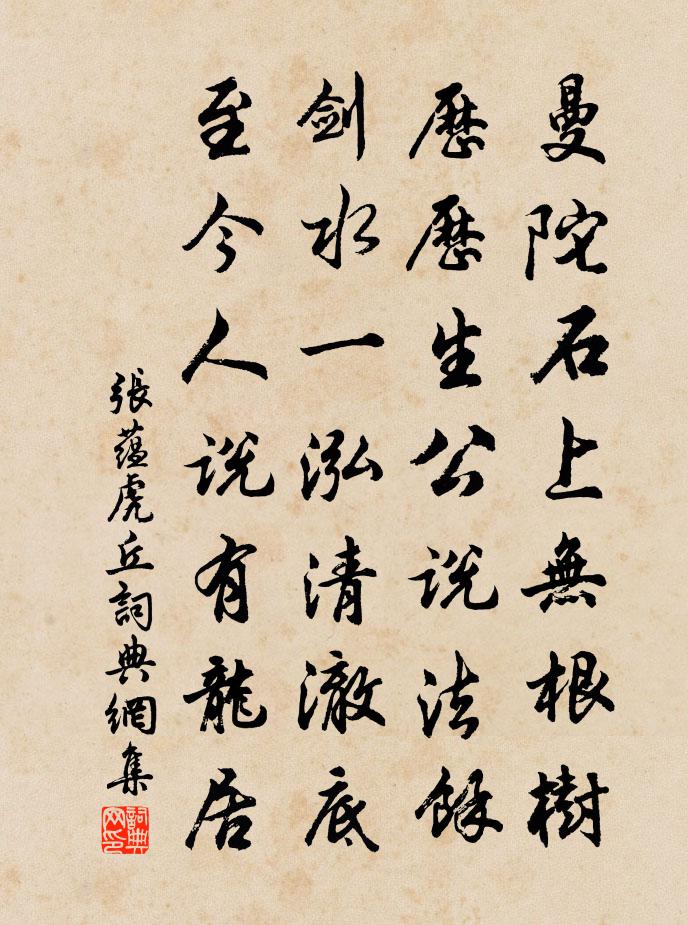 曼陀石上無根樹
歷歷生公説法餘
劍水一泓清澈底
至今人説有龍居
張蘊虎丘詞典網集
詞典網印